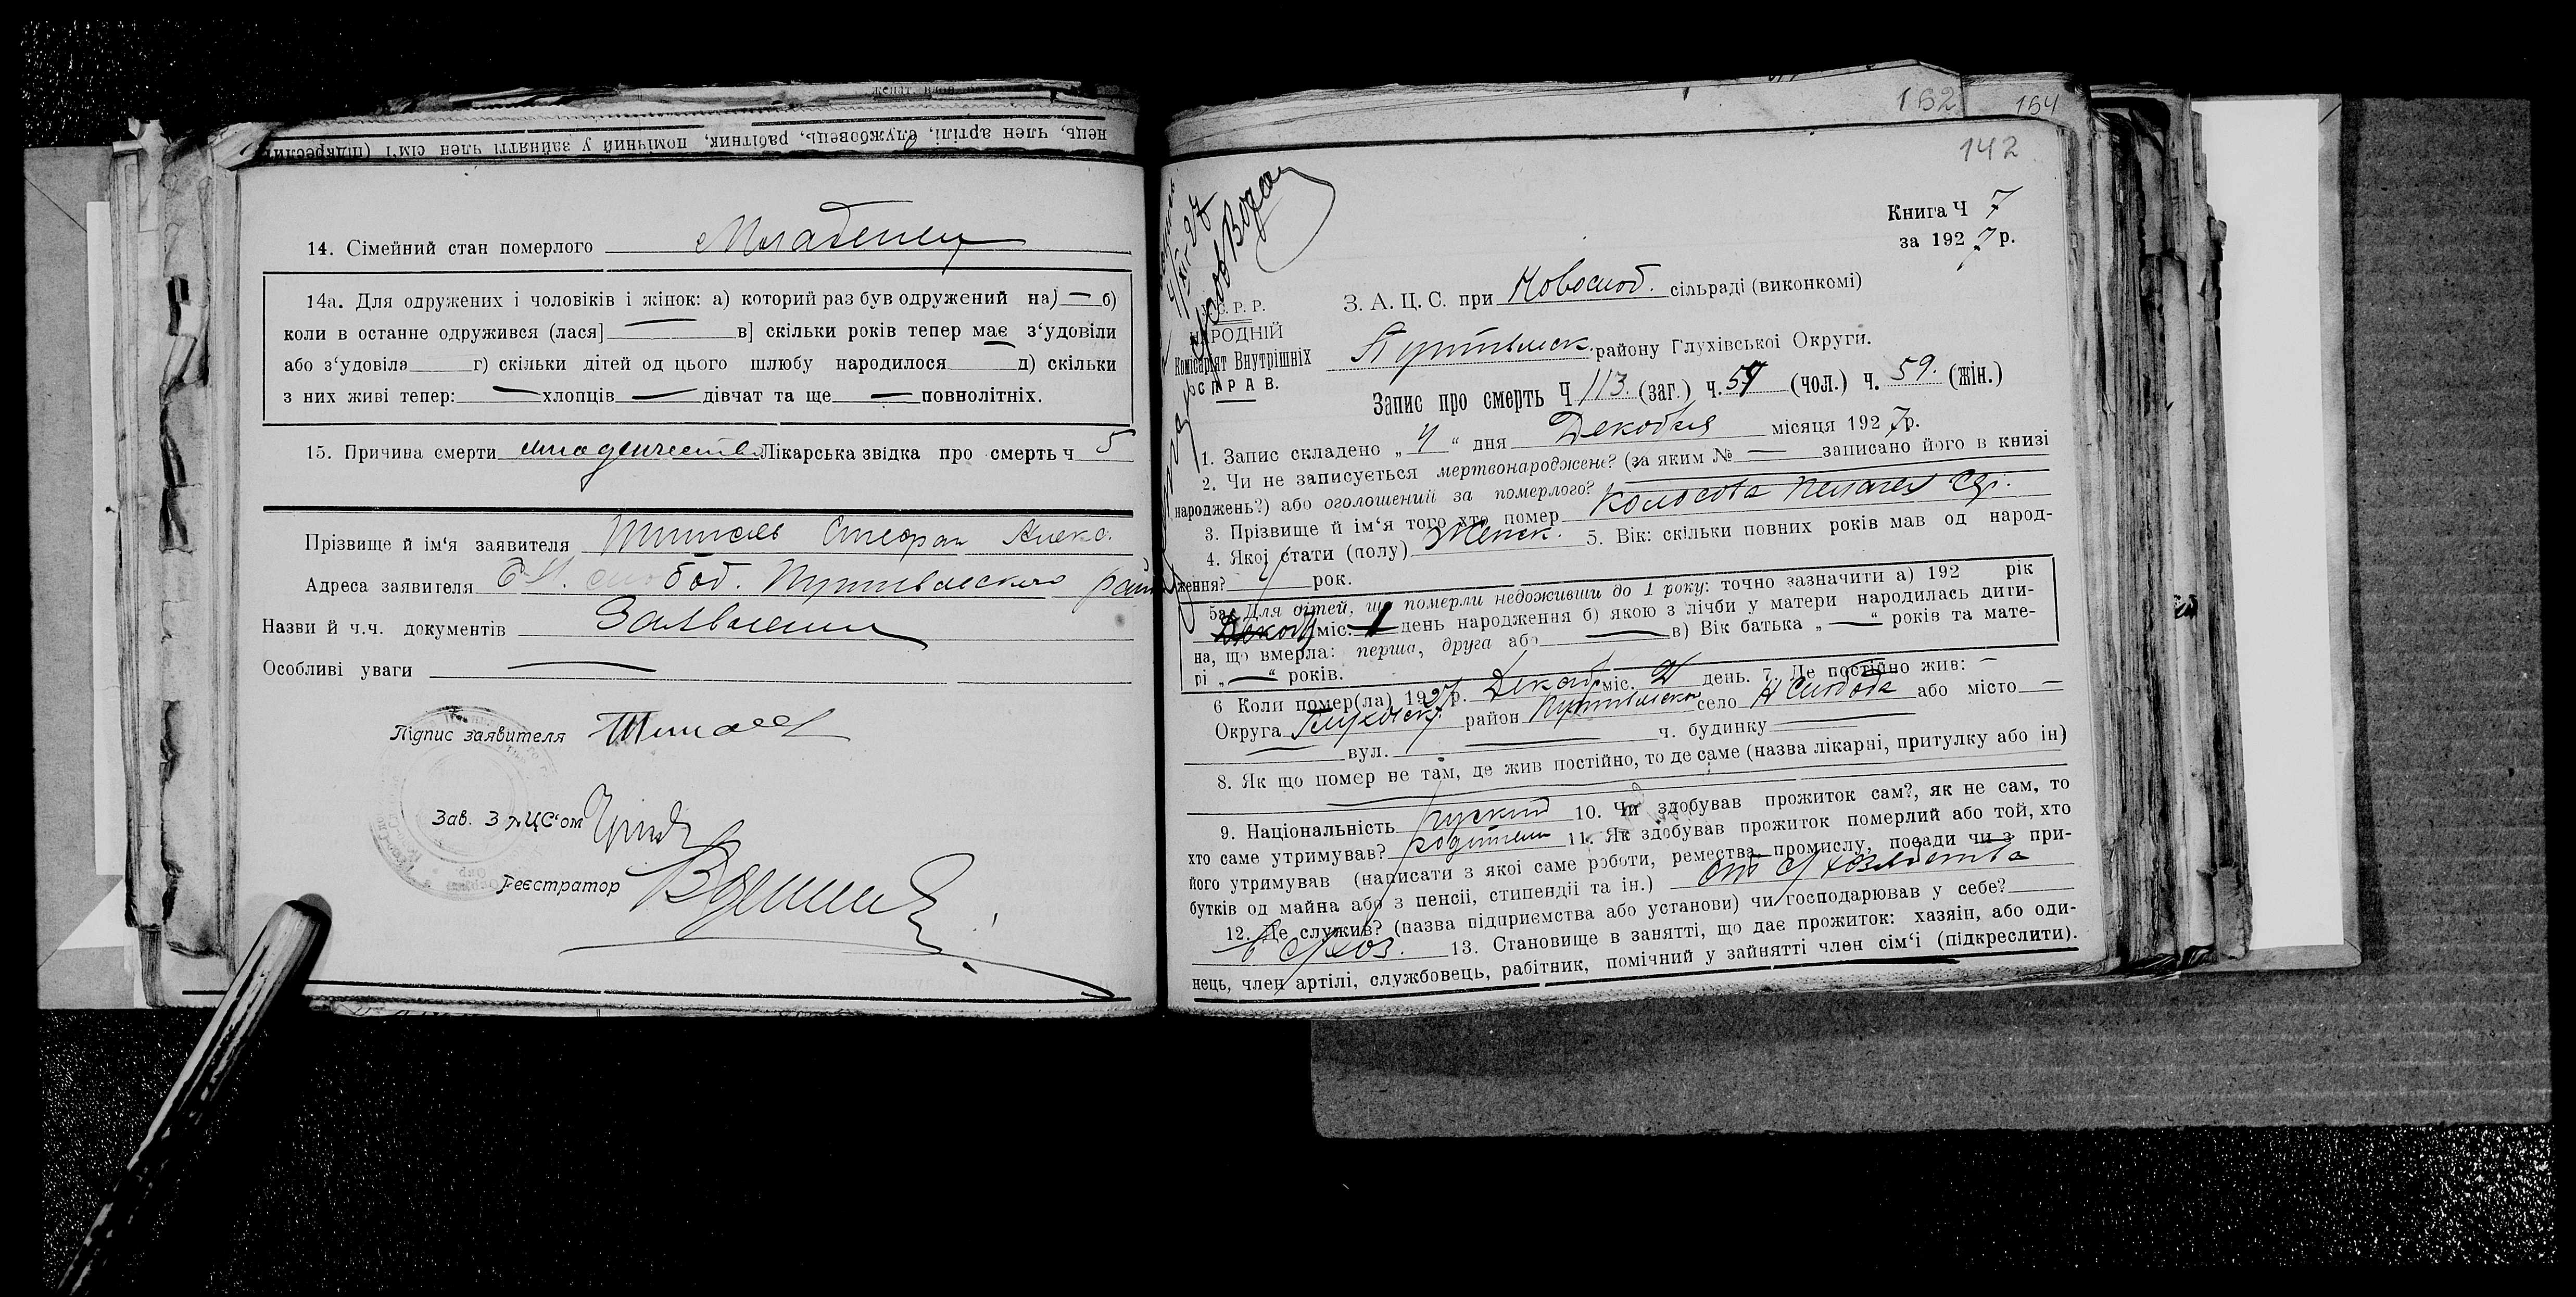 нець, член артілі, службовець, рабітник, помічний у зайнятті член сім‘ї (підкреслити
14. Сімейний стан померлого Младенец
14а. Для одружених і чоловіків і жінок: а) которий раз був одружений на) — б)
коли в останне одружився (лася] — в] скільки років тепер має з‘удовіли
або з‘удовіла г) скільки дітей од цього шлюбу народилося д) скільки
з них живі тепер: — хлопців — дівчат та ще — повнолітніх.
15. Причина смерти младенчество Лікарська звідка про смерть ч 5
Прізвище й ім‘я заявителя Стефан Алекс.
Адреса заявителя слобод. Путивльского район
Назви й ч.ч. документів Заявление
Особливі уваги —
Підпис заявителя
Зав. ЗАЦС‘ом
Реєстратор
152 154
142
Книга Ч 7
за 1927 р.
С. Р. Р.
НАРОДНІЙ
Комісаріят Внутрішніх
СПРАВ.
З. А. Ц. С. при Новослоб. сільраді (виконкомі)
Путивльск. району Глухівської Округи.
Запис про смерть Ч 113. (заг.) ч. 54 (чол.) ч. 59. (жін.)
1. Запис складено „ 4 “ дня Декабря місяця 1927 р.
2. Чи не записується мертвонароджене? (за яким № — записано його в книзі
народжень?) або оголошений за померлого?
3. Прізвище й ім‘я того хто помер Колосова Пелагея
4. Якої стати (полу) Женск. 5. Вік: скільки повних років мав од народ-
ження? рок.
5а. Для дітей, що померли недоживши до 1 року: точно зазначити а) 192 рік
Декаб міс. 1 день народження б) якою з лічби у матери народилась дити-
на, що вмерла: перша, друга або — в) Вік батька „ — “ років та мате-
рі „ — “ років.
6 Коли помер(ла) 1927 р. Декаб міс. 2 день. 7. Де постійно жив: —
Округа Глуховск. район Путивльско село Н Слобода або місто —
— вул. — ч. будинку —
8. Як що помер не там, де жив постійно, то де саме (назва лікарні, притулку або ін)
9. Національність руский 10. Чи здобував прожиток сам?, як не сам, то
хто саме утримував? родители 11. Як здобував прожиток померлий або той, хто
його утримував (написати з якої саме роботи, ремества промислу, посади чи з при-
бутків од майна або з пенсії, стипендії та ін.) от с/хозяйства
12. Де служив? (назва підприємства або установи) чи господарював у себе?
в с/хоз. 13. Становище в занятті, що дає прожиток: хазяін, або оди-
нець, член артілі, службовець, рабітник, помічний у зайнятті член сім‘ї (підкреслити).